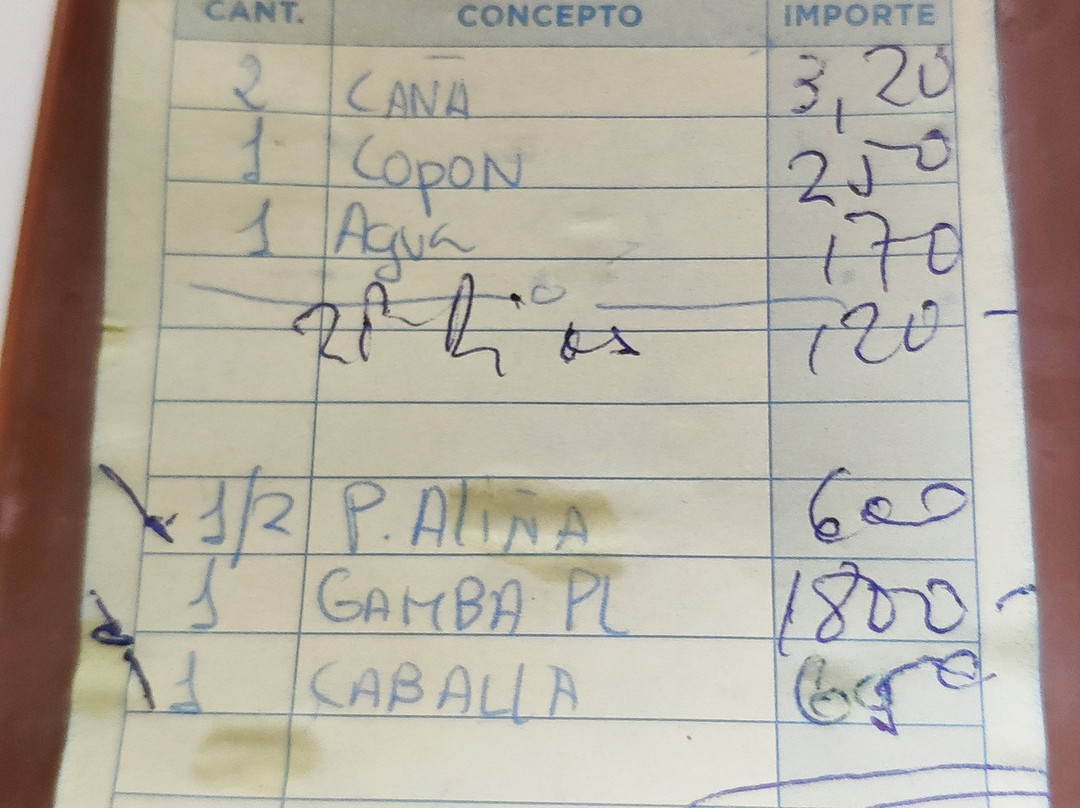 CANT. CONCEPTO IMPORTE
2 CAÑA 3,20
1 COPON 250
1 Agua 170
120
1/2 P. ALIÑA 600
1 GAMBA PL 1800
1 CABALLA 650